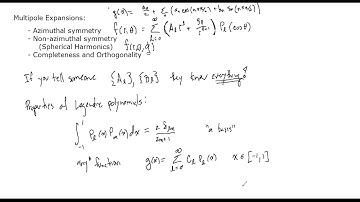 Multipole Expansions:
- Azimuthal symmetry
- Non-azimuthal symmetry
(Spherical Harmonics)
- Completeness and Orthogonality
f(r,θ) = Σ_{l=0}^{∞} (A_l r^l + B_l/r^{l+1}) P_l(cos θ)
f(r,θ,φ)
If you tell someone {A_l}, {B_l} they know everything!
Properties of Legendre polynomials:
∫_{-1}^{1} P_l(x) P_m(x) dx = 2 δ_{lm}/(2m+1) "a basis"
any* function g(x) = Σ_{l=0}^{∞} C_l P_l(x) x ∈ [-1,1]